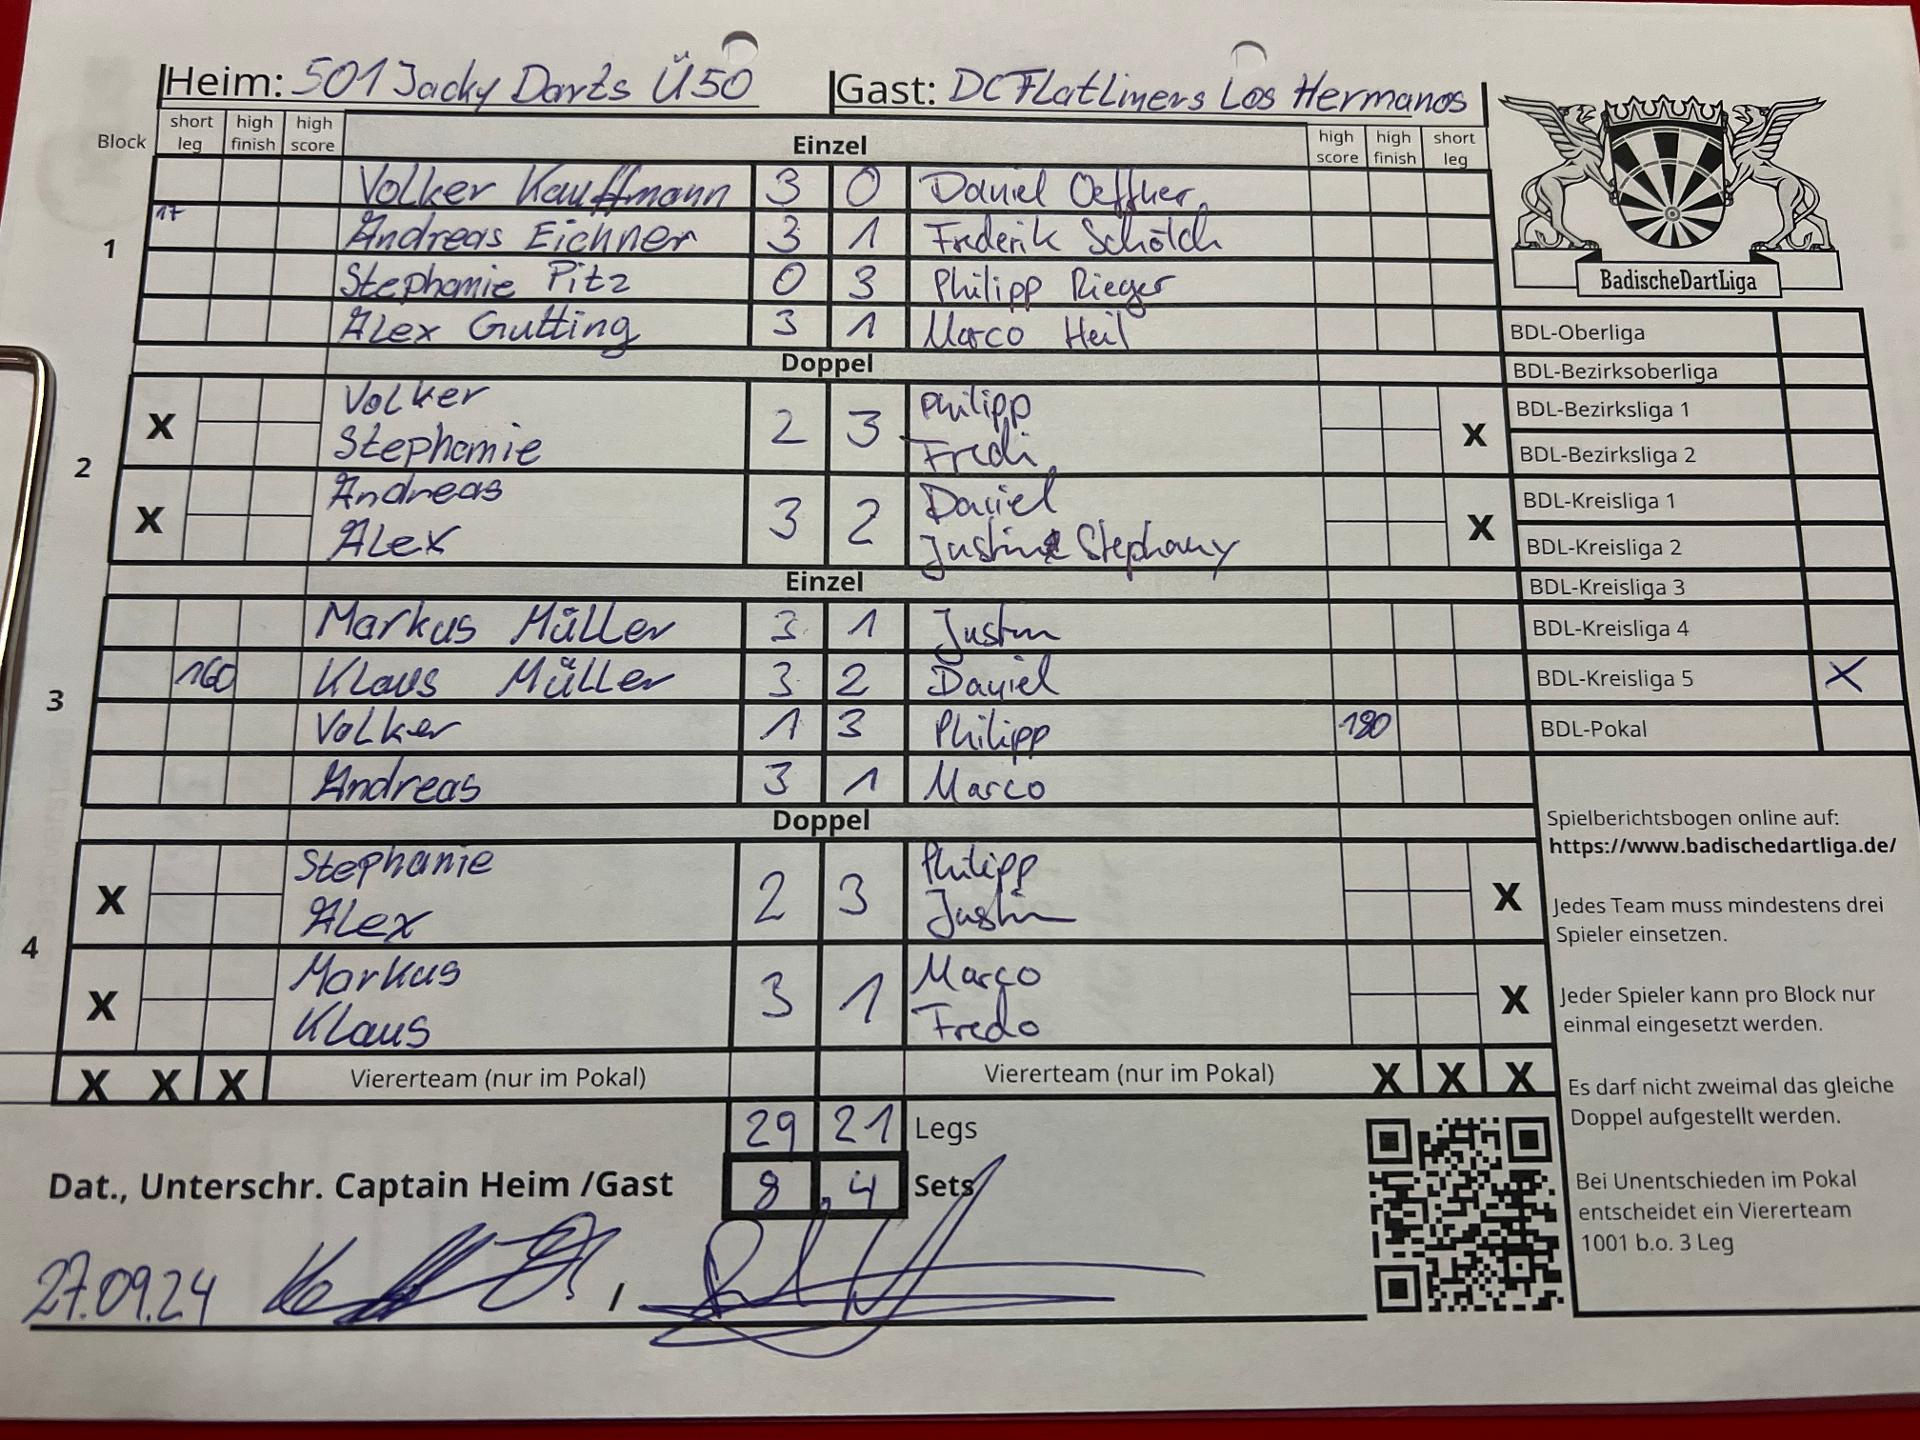 Heim: 501 Jacky Darts Ü50 Gast: DC Flatliners Los Hermanos
Block short leg high finish high score Einzel high score high finish short leg
Volker Kauffmann 3 0 Daniel Oeffner
1 17 Andreas Eichner 3 1 Frederik Schölch
Stephanie Pitz 0 3 Philipp Rieger
Alex Gutting 3 1 Marco Heil
Doppel
2
X Volker Stephanie 2 3 Philipp Fredi X
X Andreas Alex 3 2 Daniel Justin Stephany X
Einzel
3
Markus Müller 3 1 Justin
160 Klaus Müller 3 2 Daniel
Volker 1 3 Philipp 180
Andreas 3 1 Marco
Doppel
4
X Stephanie Alex 2 3 Philipp Justin X
X Markus Klaus 3 1 Marco Fredo X
X X X Viererteam (nur im Pokal) Viererteam (nur im Pokal) X X X
29 21 Legs
Dat., Unterschr. Captain Heim /Gast 8 4 Sets
27.09.24 /
BadischeDartLiga
BDL-Oberliga
BDL-Bezirksoberliga
BDL-Bezirksliga 1
BDL-Bezirksliga 2
BDL-Kreisliga 1
BDL-Kreisliga 2
BDL-Kreisliga 3
BDL-Kreisliga 4
BDL-Kreisliga 5 X
BDL-Pokal
Spielberichtsbogen online auf:
https://www.badischedartliga.de/
Jedes Team muss mindestens drei
Spieler einsetzen.
Jeder Spieler kann pro Block nur
einmal eingesetzt werden.
Es darf nicht zweimal das gleiche
Doppel aufgestellt werden.
Bei Unentschieden im Pokal
entscheidet ein Viererteam
1001 b.o. 3 Leg